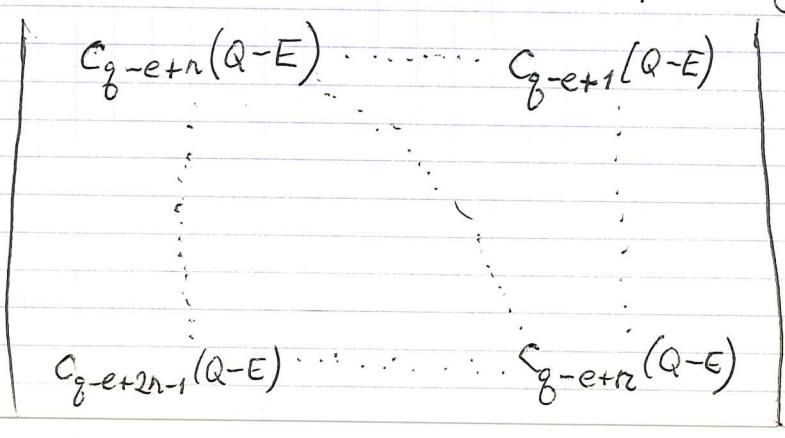 C_{q-e+n}(Q-E) ......... C_{q-e+1}(Q-E)
C_{q-e+2n-1}(Q-E) ......... C_{q-e+n}(Q-E)